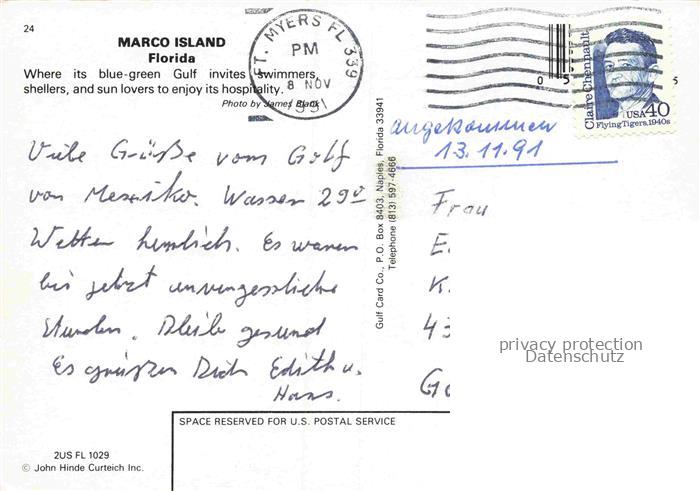 24
MARCO ISLAND
Florida
Where its blue-green Gulf invites swimmers,
shellers, and sun lovers to enjoy its hospitality.
Photo by James Blank
FT. MYERS FL 339
PM
8 NOV
1991
Claire Chennault
USA 40
Flying Tigers, 1940s
0 5 5
angekommen
13.11.91
Viele Grüße vom Golf
von Mexiko. Wasser 29°
Wetter herrlich. Es waren
bis jetzt unvergessliche
Stunden. Bleib gesund
Es grüßen Dich Edith u.
Hans.
Gulf Card Co., P.O. Box 8403, Naples, Florida 33941
Telephone (813) 597-4666
Frau
E.
K.
43
G
privacy protection
Datenschutz
SPACE RESERVED FOR U.S. POSTAL SERVICE
2US FL 1029
© John Hinde Curteich Inc.